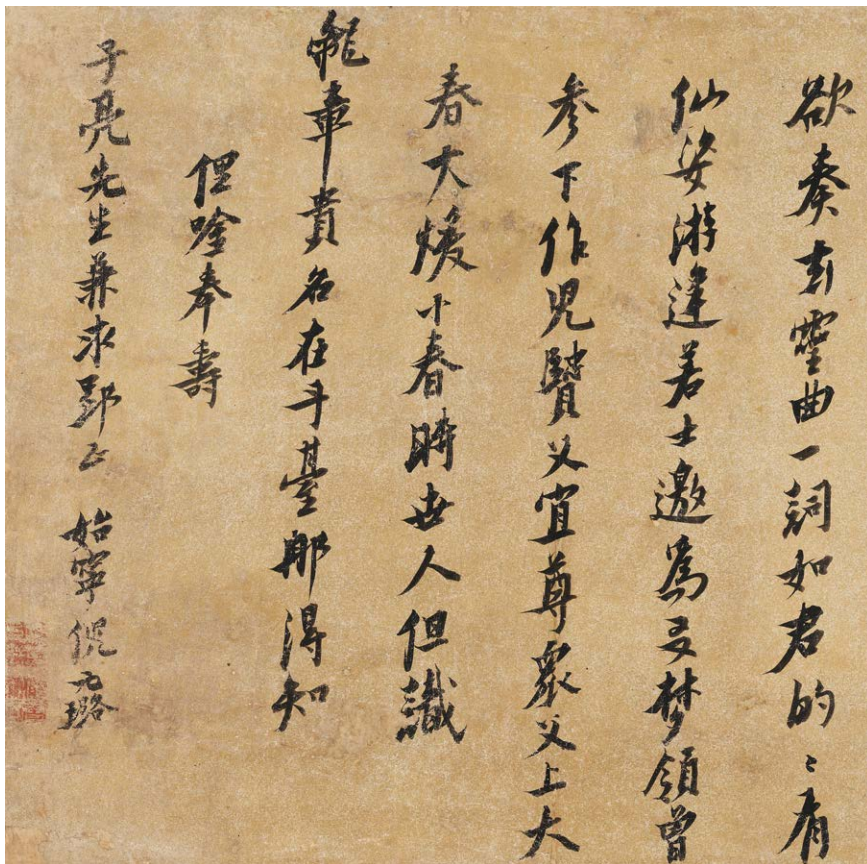 欲奏玄靈曲一詞如君的〻有
仙姿游逢若士邀為友梦領曾
參下作兒賢父宜尊眾父上大
春大煖小春時世人但識
龍章貴名在斗臺那得知
俚唫奉壽
子亮先生兼求郢正 始寧倪元璐